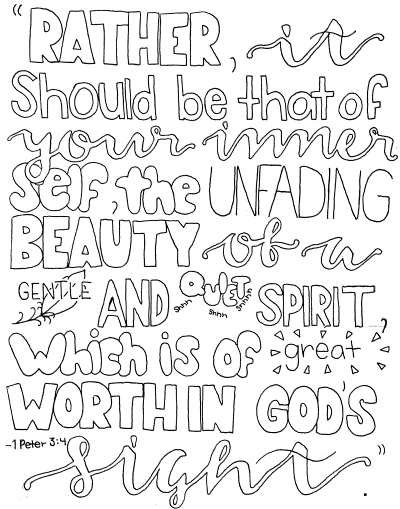 “RATHER, it
Should be that of
your inner
Self, the UNFADING
BEAUTY of a
GENTLE AND QUIET SPIRIT,
Shhh Shhh Shhhh
Which is of great
WORTH IN GOD'S
-1 Peter 3:4
sight”